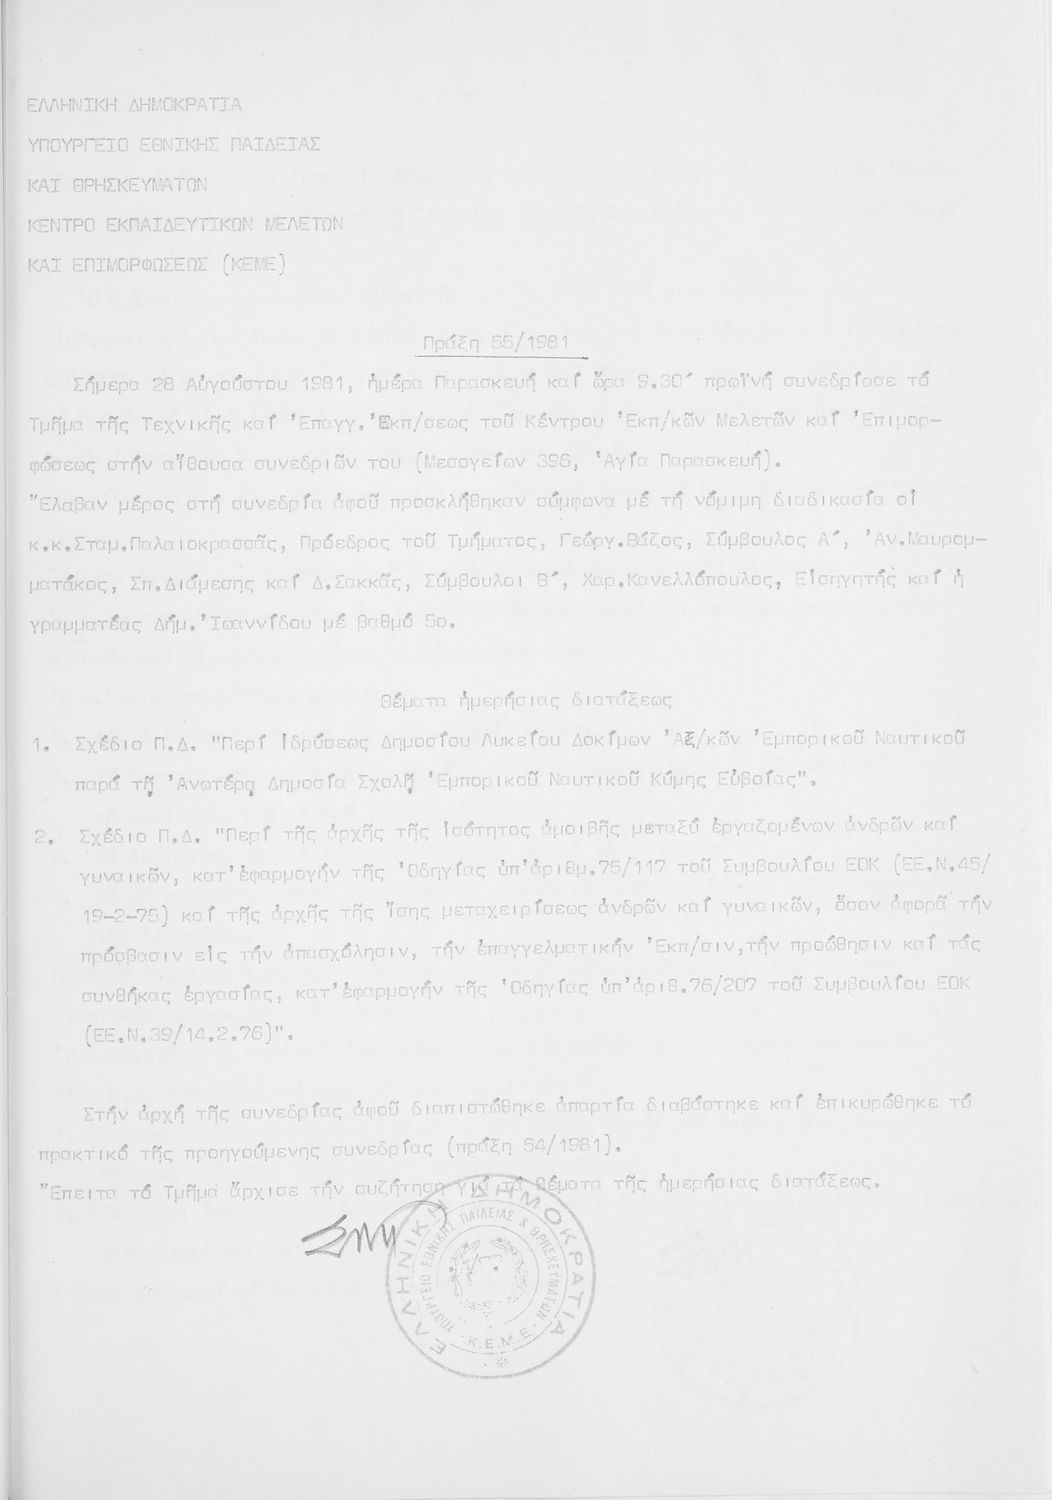 ΕΛΛΗΝΙΚΗ ΔΗΜΟΚΡΑΤΙΑ
ΥΠΟΥΡΓΕΙΟ ΕΘΝΙΚΗΣ ΠΑΙΔΕΙΑΣ
ΚΑΙ ΘΡΗΣΚΕΥΜΑΤΩΝ
ΚΕΝΤΡΟ ΕΚΠΑΙΔΕΥΤΙΚΩΝ ΜΕΛΕΤΩΝ
ΚΑΙ ΕΠΙΜΟΡΦΩΣΕΩΣ (ΚΕΜΕ)
Πράξη 55/1981
Σήμερα 28 Αὐγούστου 1981, ἡμέρα Παρασκευή καί ὥρα 9.30΄ πρωϊνή συνεδρίασε τό
Τμῆμα τῆς Τεχνικῆς καί Ἐπαγγ.Ἐκπ/σεως τοῦ Κέντρου Ἐκπ/κῶν Μελετῶν καί Ἐπιμορ-
φώσεως στήν αἴθουσα συνεδριῶν του (Μεσογείων 396, Ἁγία Παρασκευή).
Ἔλαβαν μέρος στή συνεδρία ἀφοῦ προσκλήθηκαν σύμφωνα μέ τή νόμιμη διαδικασία οἱ
κ.κ.Σταμ.Παλαιοκρασσᾶς, Πρόεδρος τοῦ Τμήματος, Γεώργ.Βάζος, Σύμβουλος Α΄, Ἀν.Μαυρομ-
ματάκος, Σπ.Διάμεσης καί Δ.Σακκᾶς, Σύμβουλοι Β΄, Χαρ.Κανελλόπουλος, Εἰσηγητής καί ἡ
γραμματέας Δήμ.Ἰωαννίδου μέ βαθμό 5ο.
Θέματα ἡμερήσιας διατάξεως
1. Σχέδιο Π.Δ. "Περί ἱδρύσεως Δημοσίου Λυκείου Δοκίμων Ἀξ/κῶν Ἐμπορικοῦ Ναυτικοῦ
παρά τῇ Ἀνωτέρᾳ Δημοσίᾳ Σχολῇ Ἐμπορικοῦ Ναυτικοῦ Κύμης Εὐβοίας".
2. Σχέδιο Π.Δ. "Περί τῆς ἀρχῆς τῆς ἰσότητος ἀμοιβῆς μεταξύ ἐργαζομένων ἀνδρῶν καί
γυναικῶν, κατ'ἐφαρμογήν τῆς Ὁδηγίας ὑπ'ἀριθμ.75/117 τοῦ Συμβουλίου ΕΟΚ (ΕΕ.Ν.45/
19-2-75) καί τῆς ἀρχῆς τῆς ἴσης μεταχειρίσεως ἀνδρῶν καί γυναικῶν, ὅσον ἀφορᾶ τήν
πρόσβασιν εἰς τήν ἀπασχόλησιν, τήν ἐπαγγελματικήν Ἐκπ/σιν,τήν προώθησιν καί τάς
συνθήκας ἐργασίας, κατ'ἐφαρμογήν τῆς Ὁδηγίας ὑπ'ἀριθ.76/207 τοῦ Συμβουλίου ΕΟΚ
(ΕΕ.Ν.39/14.2.76)".
Στήν ἀρχή τῆς συνεδρίας ἀφοῦ διαπιστώθηκε ἀπαρτία διαβάστηκε καί ἐπικυρώθηκε τό
πρακτικό τῆς προηγούμενης συνεδρίας (πράξη 54/1981).
Ἔπειτα τό Τμῆμα ἄρχισε τήν συζήτηση γιά τά θέματα τῆς ἡμερήσιας διατάξεως.
ΕΛΛΗΝΙΚΗ ΔΗΜΟΚΡΑΤΙΑ
ΥΠΟΥΡΓΕΙΟ ΕΘΝΙΚΗΣ ΠΑΙΔΕΙΑΣ & ΘΡΗΣΚΕΥΜΑΤΩΝ
Κ.Ε.Μ.Ε.